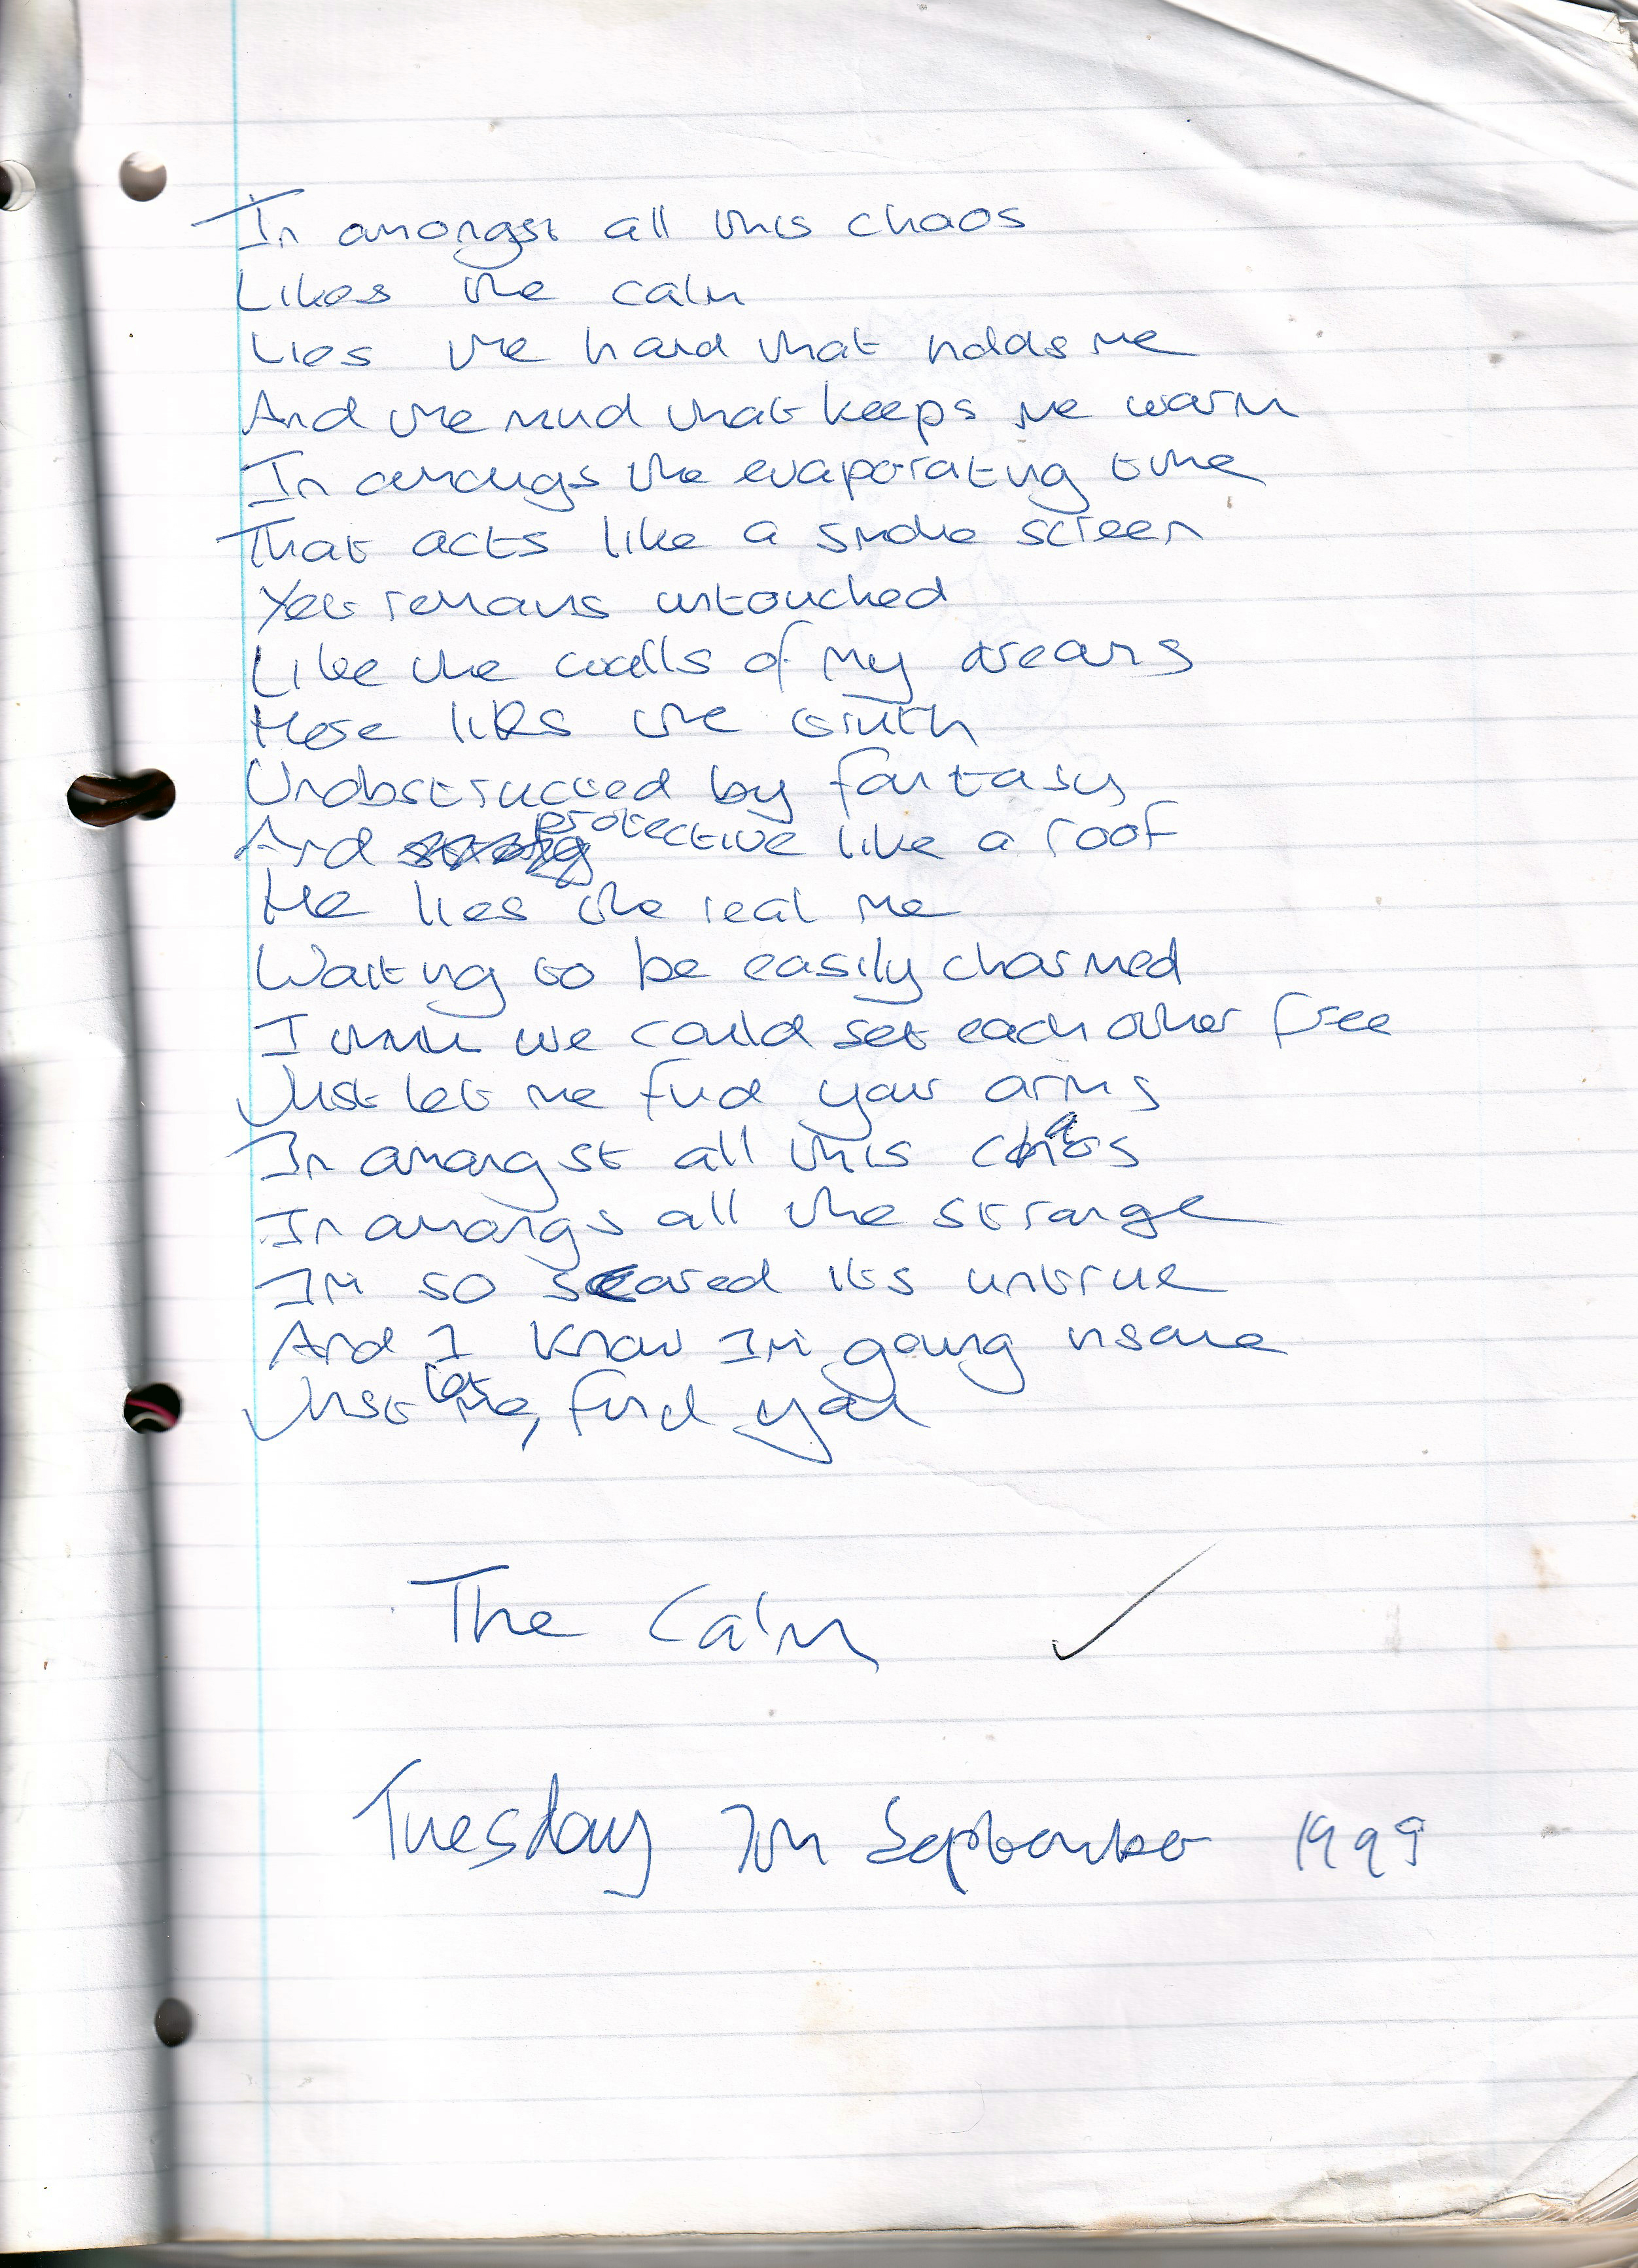 In amongst all this chaos
Likes the calm
Lies the hand that holds me
And the mud that keeps me warm
In amongs the evaporating time
That acts like a smoke screen
Yet remains untouched
Like the walls of my dreams
Here lies the truth
Unobstructed by fantasy
And protective like a roof
He lies the real me
Waiting to be easily charmed
I think we could set each other free
Just let me find your arms
In amongst all this chaos
In amongs all the strange
Im so scared its untrue
And I know Im going insane
Just let me, find you
The Calm
Tuesday 7th September 1999